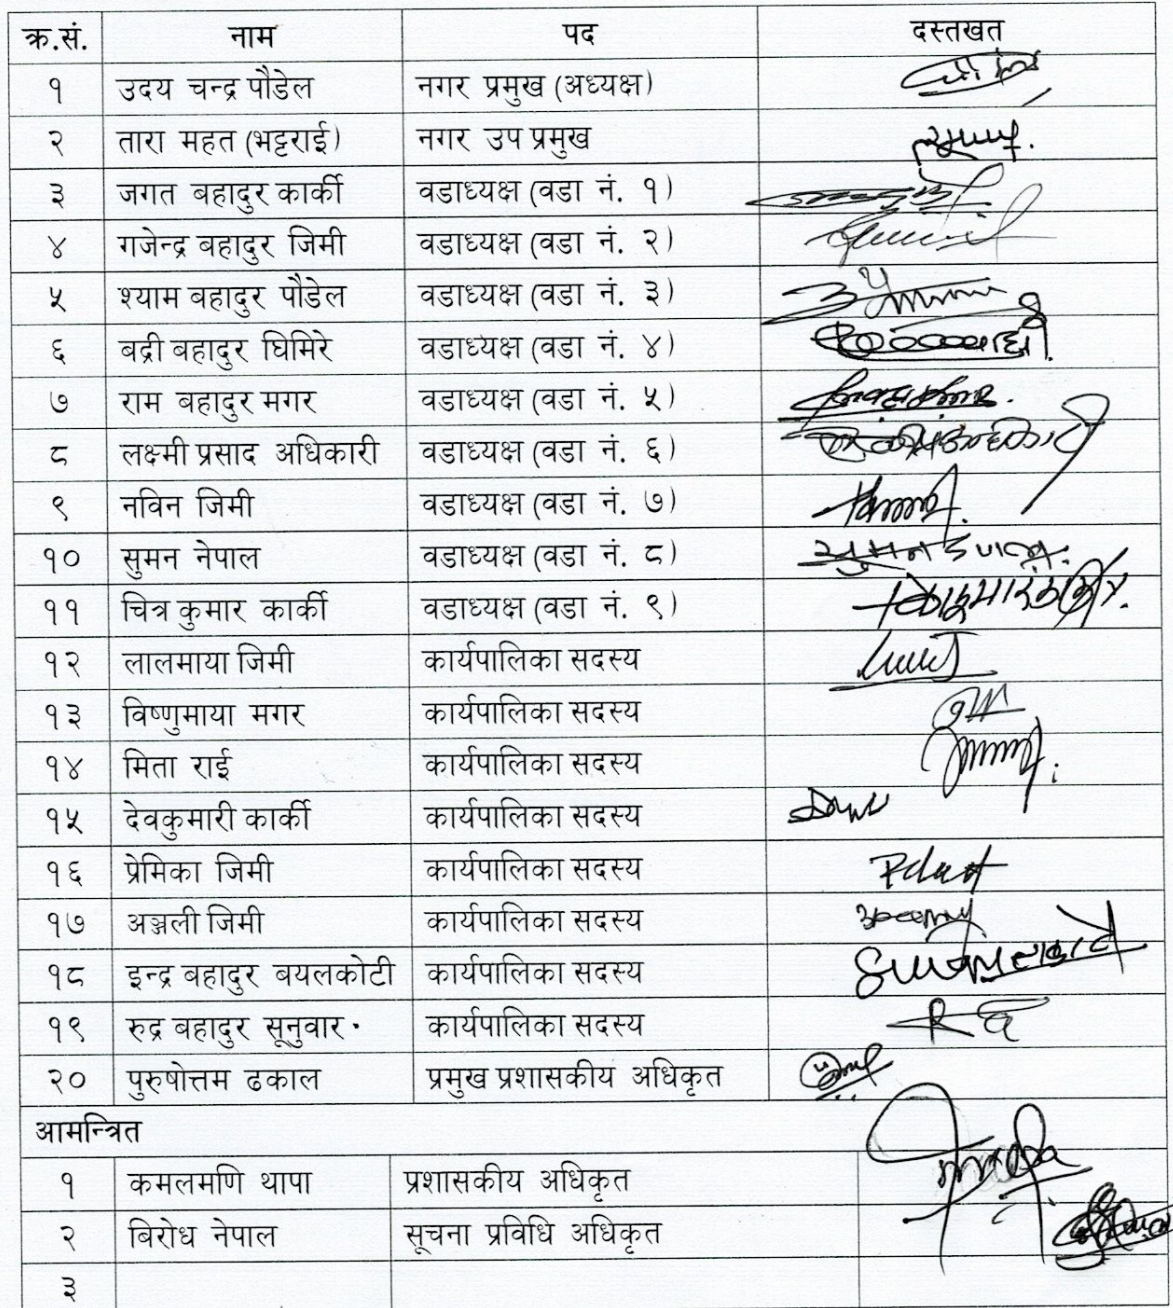 क्र.सं. नाम पद दस्तखत
१ उदय चन्द्र पौडेल नगर प्रमुख (अध्यक्ष)
२ तारा महत (भट्टराई) नगर उप प्रमुख
३ जगत बहादुर कार्की वडाध्यक्ष (वडा नं. १)
४ गजेन्द्र बहादुर जिमी वडाध्यक्ष (वडा नं. २)
५ श्याम बहादुर पौडेल वडाध्यक्ष (वडा नं. ३)
६ बद्री बहादुर घिमिरे वडाध्यक्ष (वडा नं. ४)
७ राम बहादुर मगर वडाध्यक्ष (वडा नं. ५)
८ लक्ष्मी प्रसाद अधिकारी वडाध्यक्ष (वडा नं. ६)
९ नविन जिमी वडाध्यक्ष (वडा नं. ७)
१० सुमन नेपाल वडाध्यक्ष (वडा नं. ८)
११ चित्र कुमार कार्की वडाध्यक्ष (वडा नं. ९)
१२ लालमाया जिमी कार्यपालिका सदस्य
१३ विष्णुमाया मगर कार्यपालिका सदस्य
१४ मिता राई कार्यपालिका सदस्य
१५ देवकुमारी कार्की कार्यपालिका सदस्य
१६ प्रेमिका जिमी कार्यपालिका सदस्य
१७ अञ्जली जिमी कार्यपालिका सदस्य
१८ इन्द्र बहादुर बयलकोटी कार्यपालिका सदस्य
१९ रुद्र बहादुर सूनुवार कार्यपालिका सदस्य
२० पुरुषोत्तम ढकाल प्रमुख प्रशासकीय अधिकृत
आमन्त्रित
१ कमलमणि थापा प्रशासकीय अधिकृत
२ बिरोध नेपाल सूचना प्रविधि अधिकृत
३